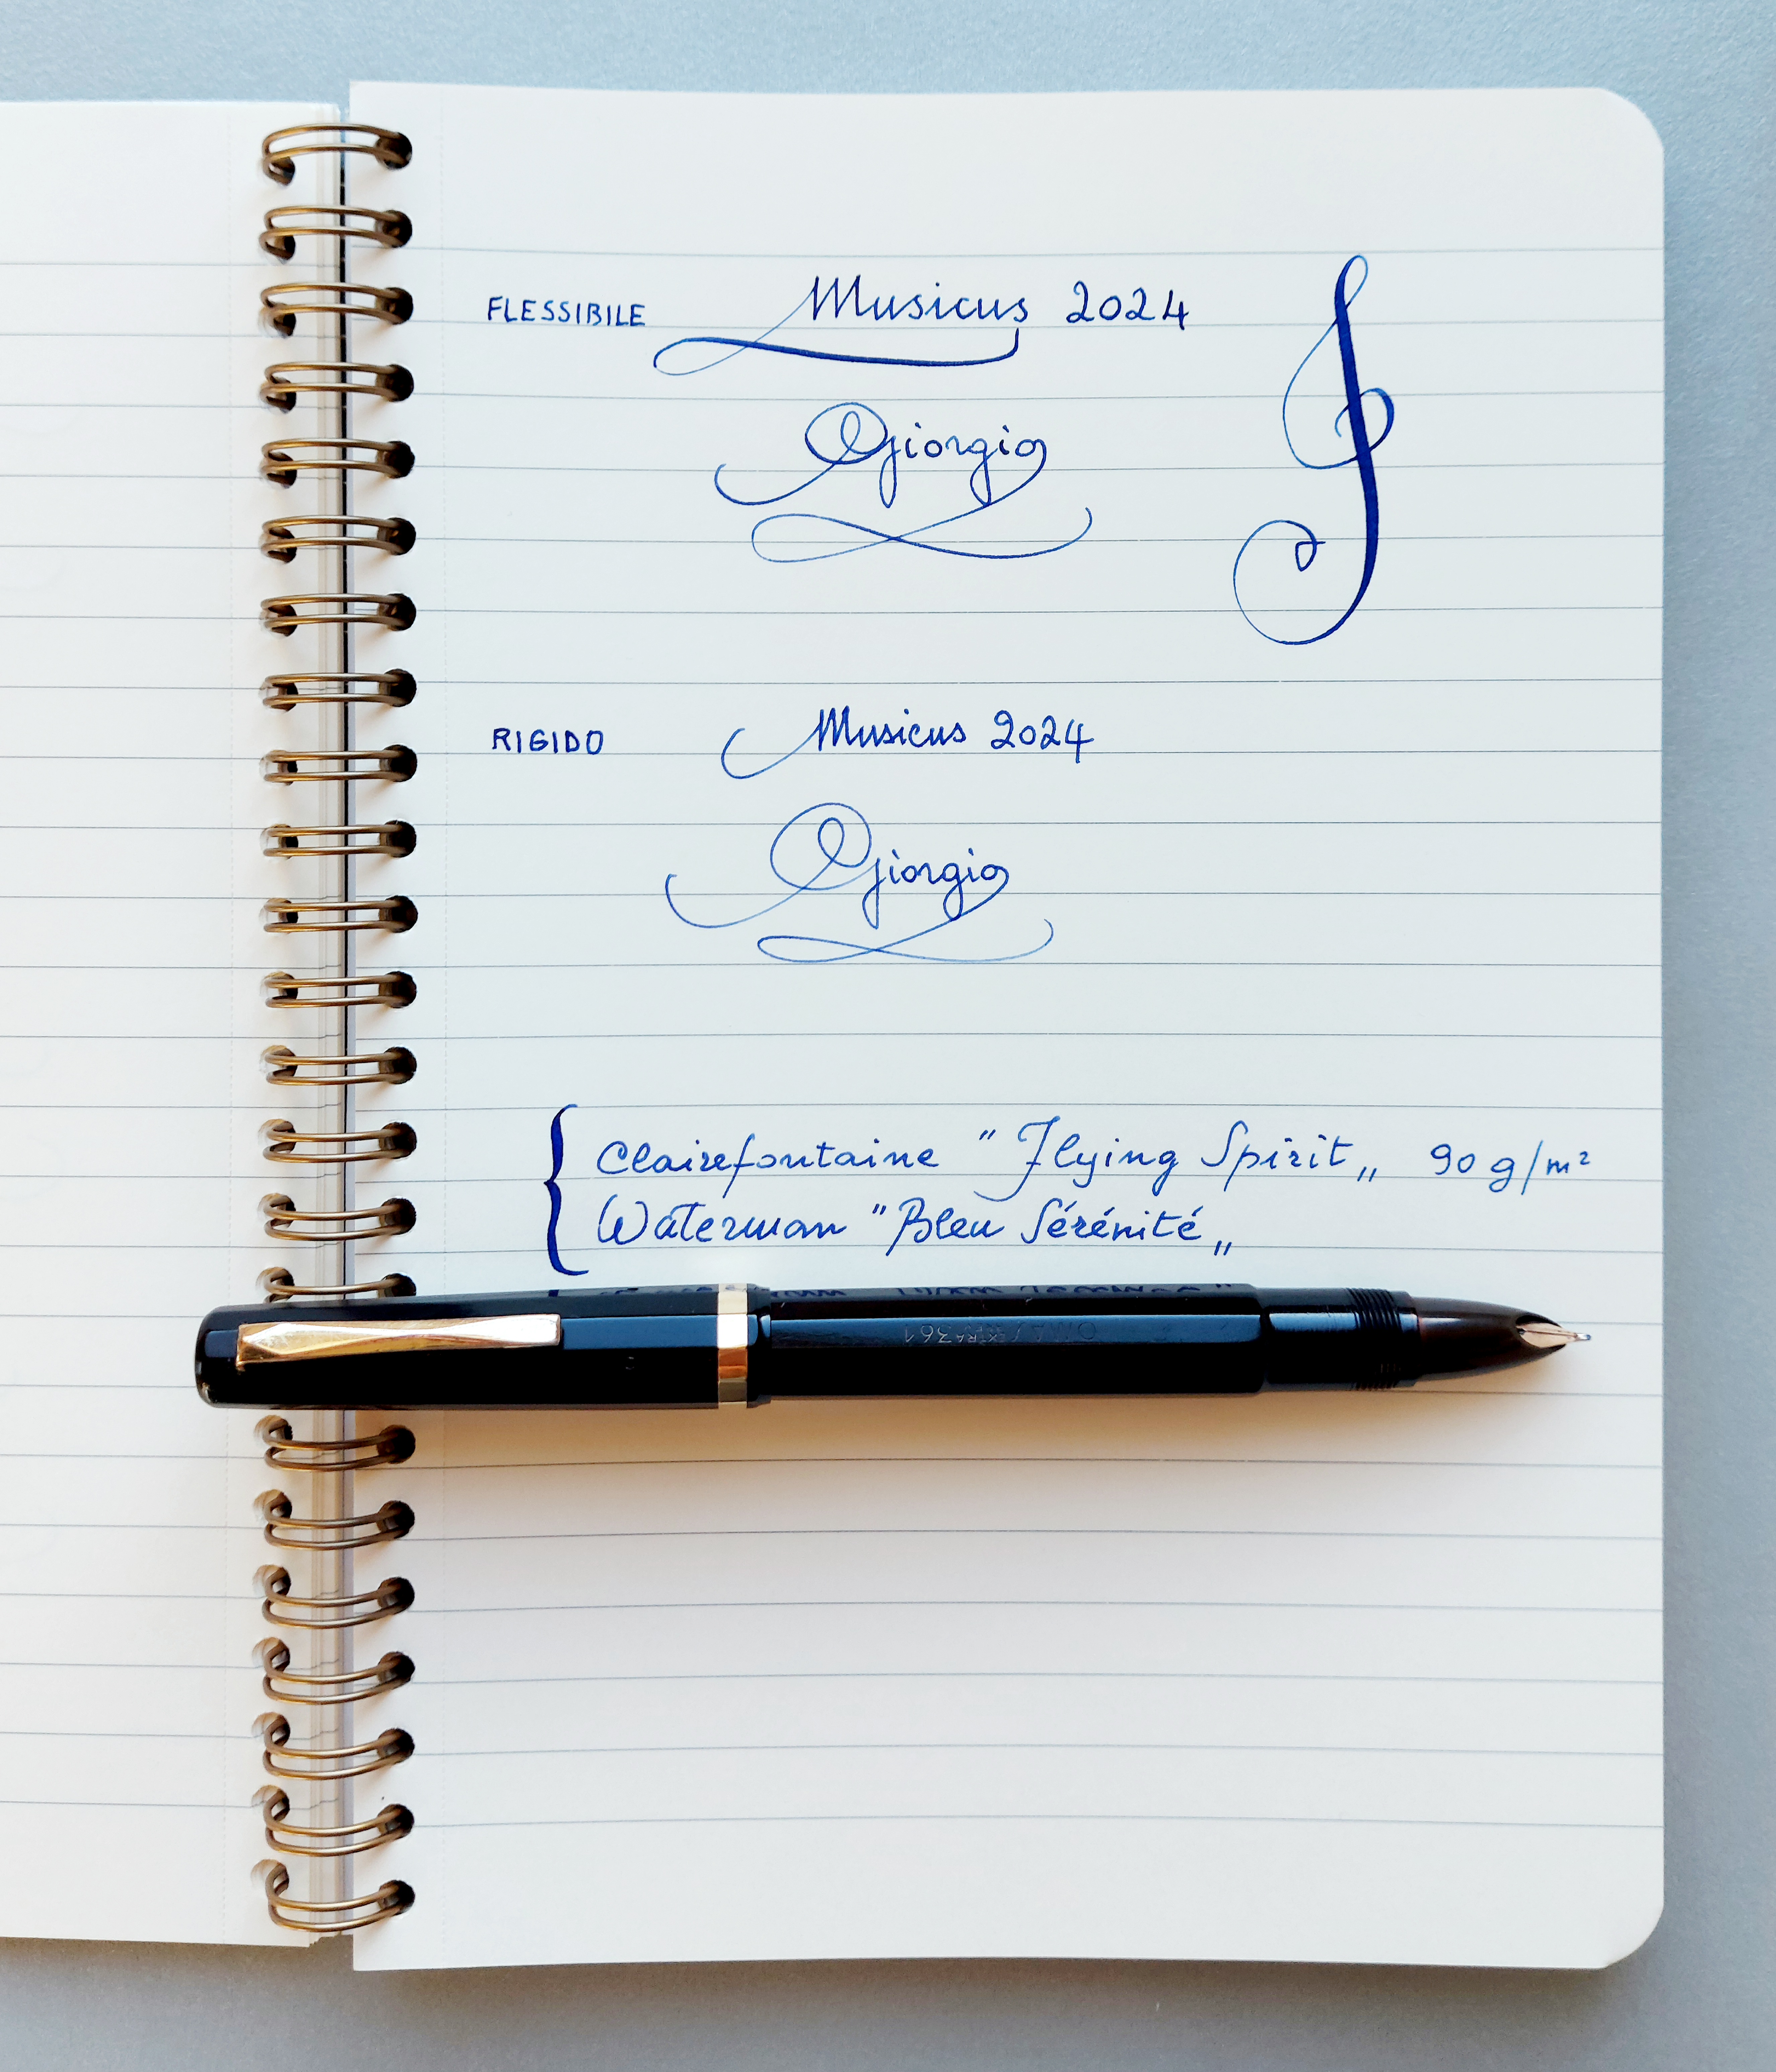 FLESSIBILE Musicus 2024
Giorgio
RIGIDO Musicus 2024
Giorgio
Clairefontaine "Flying Spirit„ 90 g/m²
Waterman "Bleu Sérénité„
OMAS EXTRA 361